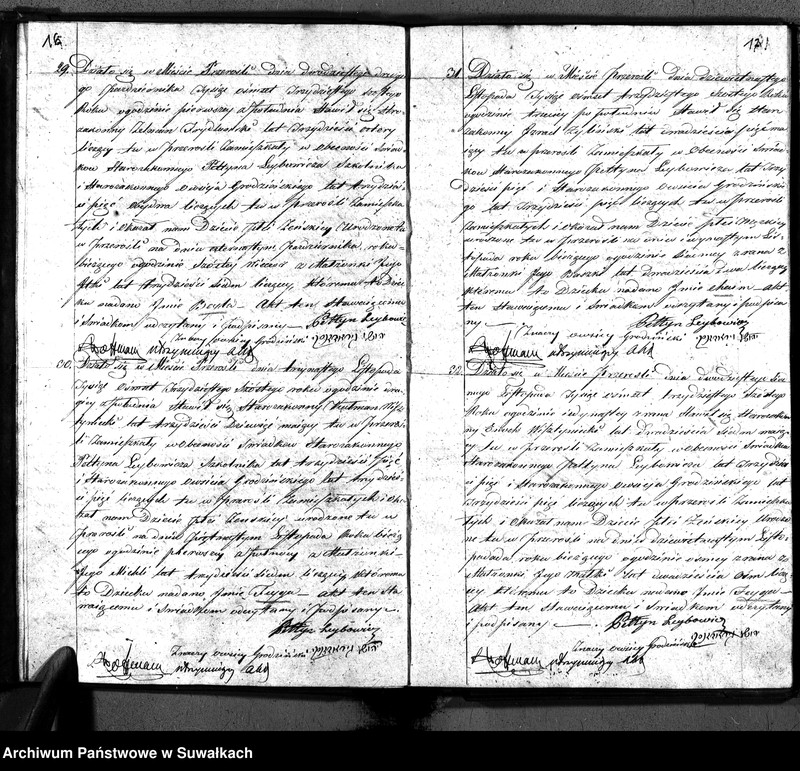 16
29. Działo się w Mieście Przerośli dnia dwudziestego drugie
go Października Tysiąc osmset Trzydziestego szostego
Roku ogodzinie pierwszey zPołudnia Stawił się Staro
zakonny Zelman lat Trzydzieści cztery
liczący tu w Przerośli Zamieszkały w Obecności Świad
kow Starozakonnego Peltyna Leybowicza Szkolnika
i Starozakonnego Owsieja Grodzińskiego lat trzydzieś
ci pięć liczących tu w Przerośli Zamieszka
łych i Okazał nam Dziecie Płci Żeńskiey Urodzone tu
w Przerośli na dniu Października roku
bieżącego ogodzinie Szostey wieczor z Małżonki Jego
lat trzydzieści siedm liczącey, któremu to Dziec
ku nadano Jmie Beyla – Akt ten Stawaiącemu
i Świadkom przeczytany i podpisany – Peltyn Leybowicz
Znaczy Owsiey Grodziński
Hoffmann utrzymujący akta
30. Działo się w Mieście Przerośli dnia Listopada
Tysiąc osmset Trzydziestego Szostego roku ogodzinie
zPołudnia Stawił się Starozakonny
lat trzydzieści Dziewięć maiący tu w przeroś
li Zamieszkały w Obecności Świadkow Starozakonnego
Peltyna Leybowicza Szkolnika lat trzydzieści Pięć
i Starozakonnego Owsieia Grodzińskiego lat trzydzieś
ci pięć liczących tu w Przerośli Zamieszkałych i Oka
zał nam Dziecie płci Żenskiey urodzone tu w
przerośli na dniu Piętnastym Listopada Roku bieżą
cego ogodzinie pierwszey zPołnocy z Małżonki
Jego Michli lat trzydzieści siedm liczącey, któremu
to Dziecku nadano Jmie Feyga – akt ten Sta
waiącemu i Świadkom odczytany i Podpisany –
Peltyn Leybowicz
Znaczy Owsiey Grodziński
Hoffmann utrzymujący akta
17
31. Działo się w Mieście Przerośli dnia dziewiętnastego
Listopada Tysiąc osmset trzydziestego Szostego Roku
ogodzinie trzeciey po południu Stawił się Staro
zakonny Jzrael lat dwadzieścia pięć ma
iący tu w przerośli Zamieszkały w Obecności Świad
kow Starozakonnego Peltyna Leybowicza lat trzy
dzieści pięć i Starozakonnego Owsieia Grodzińskie
go lat Trzydzieści pięć liczących tu w Przerośli
Zamieszkałych i okazał nam Dziecie płci Męzkiey
urodzone tu w Przerośli na dniu Lis
topada roku bieżącego ogodzinie siodmey z rana z
Małżonki Jego lat dwadzieścia dwa liczącey
któremu to Dziecku nadano Jmie Chaim – akt
ten Stawaiącemu i Świadkom przeczytany i podpisa
ny – Peltyn Leybowicz
Znaczy Owsiey Grodziński
Hoffmann utrzymujący akta
32. Działo się w Mieście Przerośli dnia dwudziestego
Listopada Tysiąc osmset trzydziestego Szostego
Roku ogodzinie iedynastey z rana Stawił się Starozakon
ny lat Dwadzieścia siedm maią
cy tu w Przerośli Zamieszkały w Obecności Świadkow
Starozakonnego Peltyna Leybowicza lat trzydzie
ści pięć i Starozakonnego Owsieia Grodzińskiego lat
trzydzieści pięć liczących tu w przerośli Zamieszka
łych i Okazał nam Dziecie Płci Żeńskiey Urodzo
ne tu w Przerośli na dniu Dziewiętnastym Listo
pada roku bieżącego ogodzinie osmey z rana z
Małżonki Jego lat dwadzieścia Ośm liczą
cey któremu to Dziecku nadano Jmie Feyga –
Akt ten Stawaiącemu i Świadkom odczytany
i podpisany – Peltyn Leybowicz
Znaczy Owsiey Grodziński
Hoffmann utrzymujący akta
Archiwum Państwowe w Suwałkach